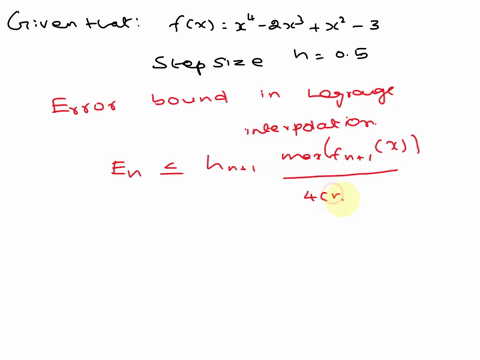 Given that: f(x) = x⁴ - 2x³ + x² - 3
Step size h = 0.5
Error bound in Lagrange
interpolation
Eₙ ≤ hₙ₊₁ max(fₙ₊₁(x))
4(n